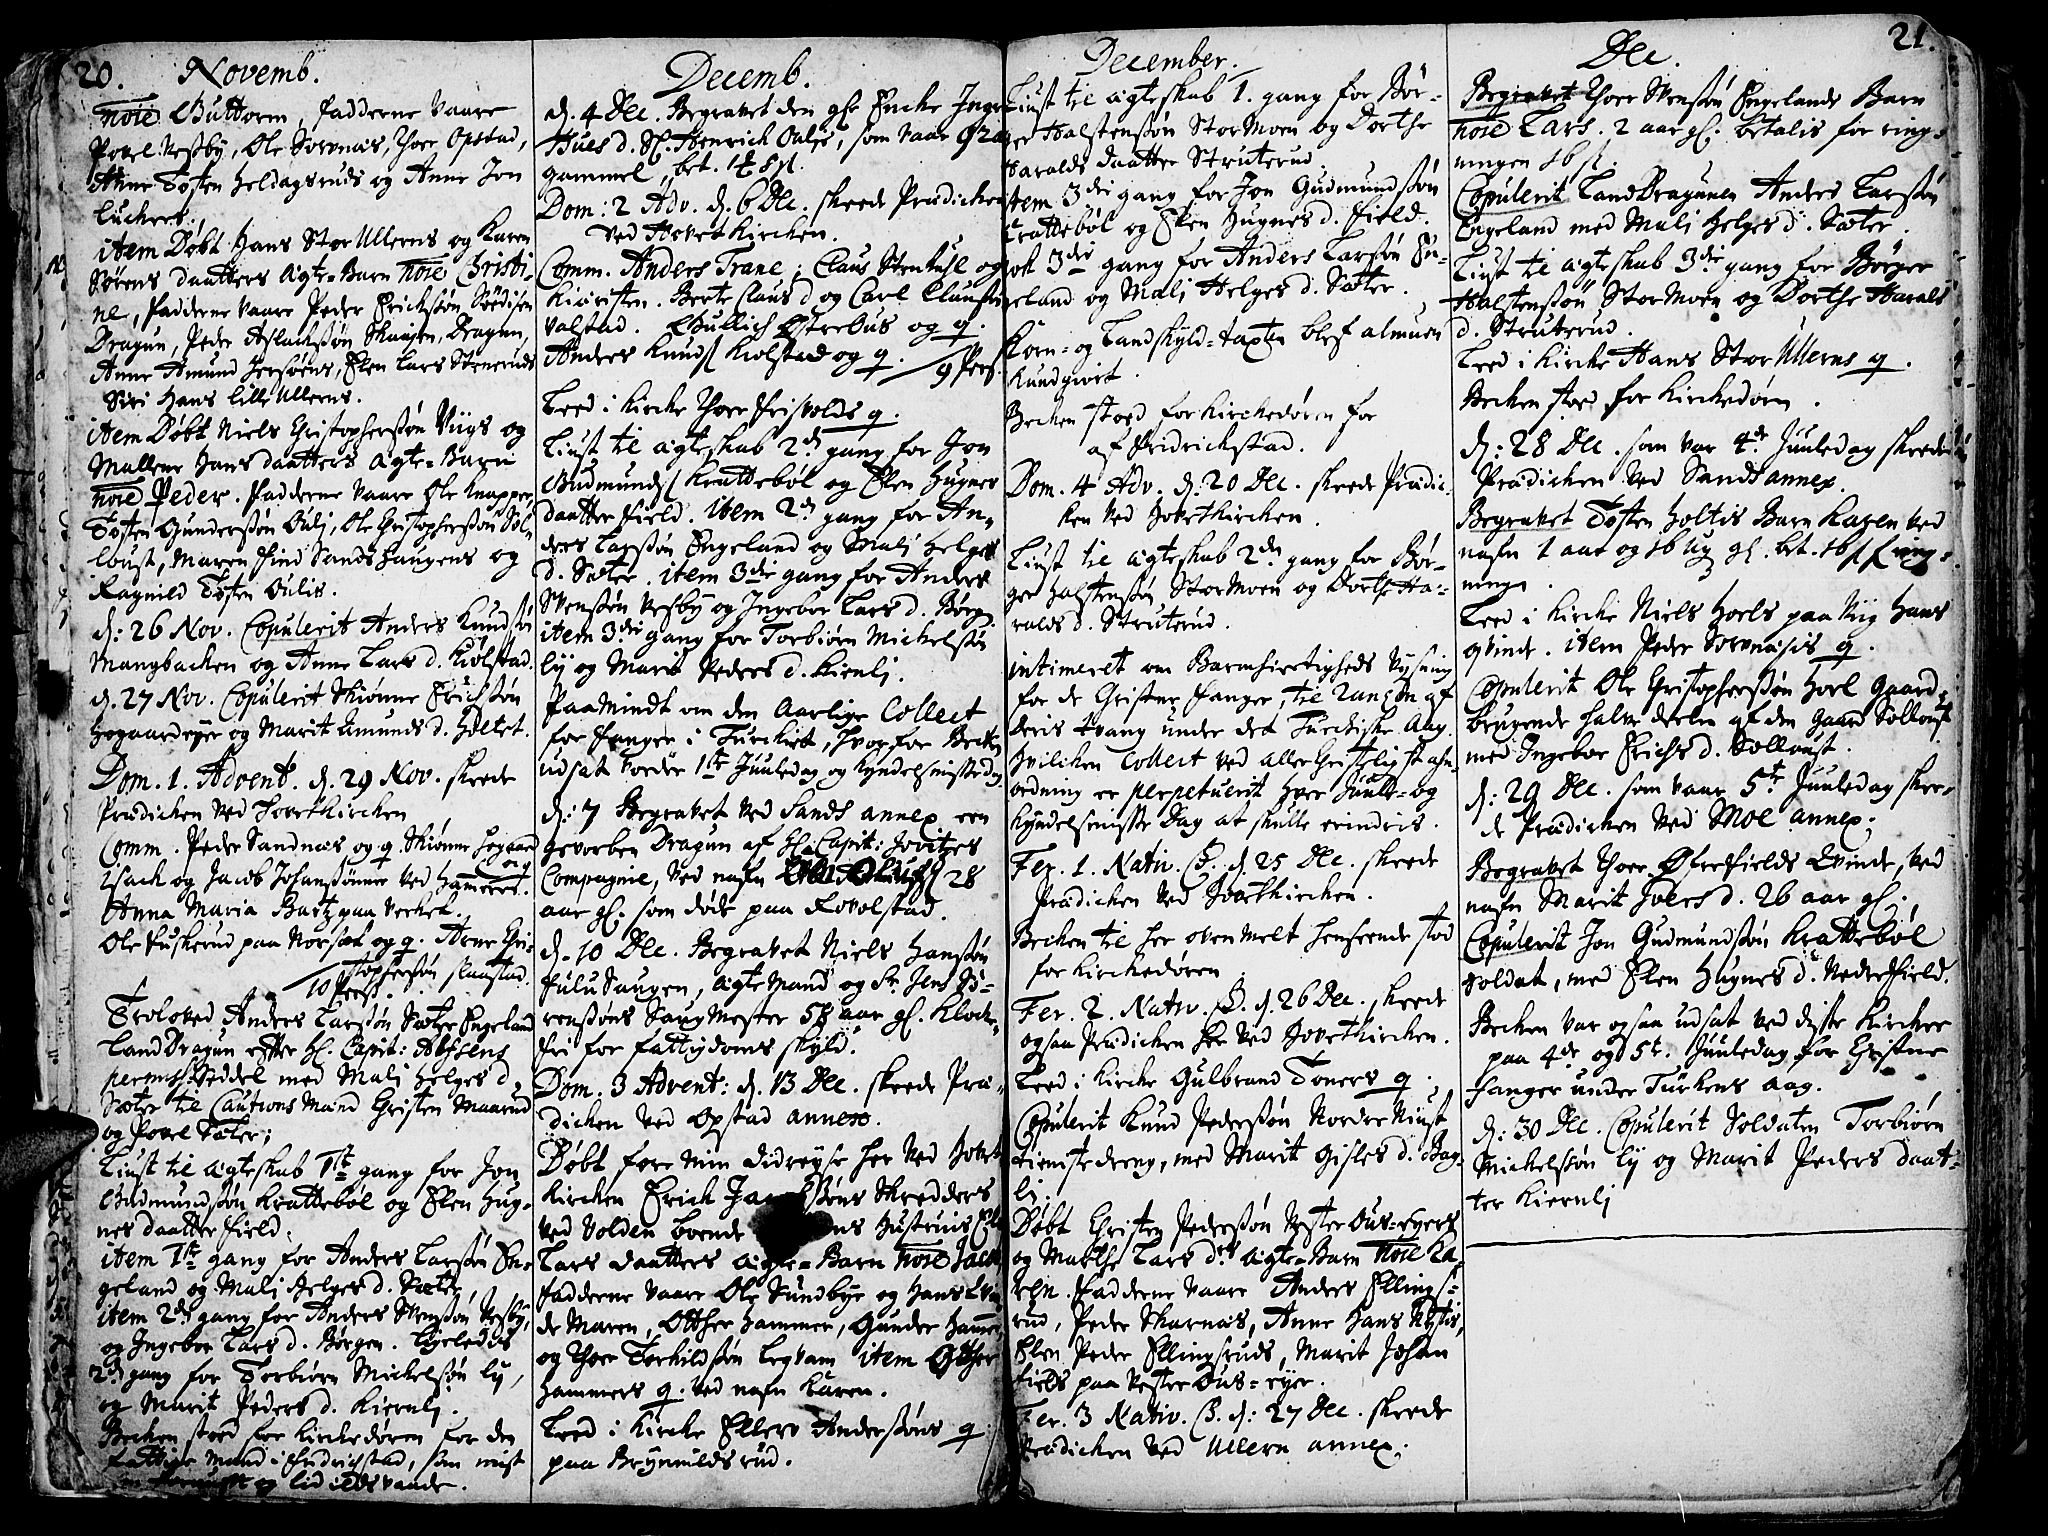 20. Novemb.
noîe Guttorm, fadderne vaare
Povel Nessby, Ole Sorvnæs, Thoer Opstad,
Anne Tosten Heldagsruds og Anne Jon
Luckers.
item Døbt Hans Stor Ullerns og Karen
Sørens daatters Agte-Barn noîe Christi-
ne, fadderne vaare Peder Erickssøn
Dragun, Peder Aslackssøn Dragun,
Anne Amund Hersøens, Elen Lars Steneruds
Siri Hans lille Ullerns.
item Døbt Niels Christopherssøn Viigs og
Mallene Hans daatters Agte-Barn
noîe Peder. fadderne vaare Ole Knapper
Tosten Gunderssøn Ouli, Ole Christopherssøn Søl-
loust, Maren find Sandshaugens og
Ragnild Tosten Oulis.
d: 26 Nov. Copulerit Anders Knudssøn
Mangbacken og Anne Lars d. Kiølstad.
d. 27 Nov. Copulerit Skiønne Erichssøn
Hogaardeyer og Marit Amunds d. Holtet.
Dom. 1. Advent. d. 29 Nov. skeede
Prædicken ved Hovetkircken
Comm. Peder Sandnæs og q. Skiønne Hogaard
Isack og Jacob Johanssønner ved Hammeren.
Anna Maria Bartz paa Verket.
Ole Fuskerud paa Norsæt og q. Arne Chri-
stopherssøn Slaastad.
10 Pers.
Troloved Anders Larssøn Sæter Engeland
Land Dragun efter Hl. Capit:
permiss: Seddel med Mali Helges d.
Sæter til Cautions Mænd Christen Maarud
og Povel Sæter;
Liust til Agteskab 1te gang for Jon
Gudmundssøn Krattebøl og Elen Hug-
nes daatter field.
item 1te gang for Anders Larssøn En-
geland og Mali Helges d. Sæter
item 2den gang for Anders Svenssøn Nesby,
og Ingebor Lars d. Børgen. Ligeledes
2den gang for Torbiørn Mickelssøn Ly,
og Marit Peders d. Kiernli.
Becken stoed for Kirckedøren for den
fattige Mand i Fridrichstad, som mist
og lid ildsvaade.
Decemb.
d. 4 Dec. Begravet den gle Encke Inge
Hues d. Sl. Henrich Oulys, som vaar 92 a
gammel, bet. 1 ort 8 sl.
Dom: 2 Adv. d. 6 Dec. skeede Prædicken
ved Hovet Kircken.
Comm. Anders Trane; Claus Stenhuse og
Kiæristen. Berte Claus d og Carl Claussøn
Valstad. Gullich Østrebus og q.
Anders Knuds Kiolstad og q. 9 Pers.
Leed i Kircke Thoer friisvolds q.
Liust til Agteskab 2den gang for Jon
Gudmunds Krattebøl og Elen Hugnes
daatter field. Item 2den gang for An-
ders Larssøn Engeland og Mali Helges
d. Sæter. item 3die gang for Anders
Svenssøn Nesby og Ingebor Lars d. Børg
item 3die gang for Torbiørn Mickelssøn
Ly og Marit Peders d. Kienli.
Paamindt om den Aarlige Collect
for fanger i Turckiet, hvorfor Becken
udsat vorder 1te Juuledag og Kyndelsmissedag.
d: 7 Begravet ved Sands annex een
gevorben Dragun af Hl. Capit: Hovitzes
Compagnie, ved nafn Ole Oluss 28
aar gl. som døde paa Rovolstad.
d. 10 Dec. Begravet Niels Hanssøn
Fulu Saugen, Agte Mand og Sr. Jens Sø-
renssøns Saug Mester 58 aar gl. Klocke-
fri for fattigdoms skyld.
Dom. 3 Advent: d. 13 Dec. skeede Præ-
dicken ved Opstad annex.
Døbt føre min didreyse her ved Hovet
Kircken Erick Ja ssøns Skredders
ved Volden boende ens Hustruis El
Lars daatters Agte-Barn noîe Jacob
fadderne vaare Ole Sundbye og Hans Qvin
de Maren, Otther Hammer, Gunder Hammer,
og Thoer Torkildssøn Legvam item Otther
Hammers q. ved nafn Karen.
Leed i Kircke Ellers Anderssøns q
paa Brynnildsrud.
December.
Liust til Agteskab 1. gang for Bør-
ger Halstenssøn Stor Moen og Dorthe
Haralds daatter Struterud.
item 3die gang for Jon Gudmundssøn
Krattebøl og Elen Hugnes d. field.
ok 3die gang for Anders Larssøn En-
geland og Mali Helges d. Sæter.
Korn- og Landskyld-taxten blef almuen
Kundgiort.
Becken stoed for Kirckedøren for
af Fridrickstad.
Dom. 4 Adv. d. 20 Dec. skeede Prædic-
ken ved Hovetkircken.
Liust til Agteskab 2den gang for Bør-
ger Halstenssøn Stor Moen og Dorthe Ha-
ralds d. Struterud.
intimeret om Barmhiertigheds Øvsning
for de Christne fanger, til ranzon af
deris tvang under det Turckiske Aag,
hvilcken Collect ved aller Christeligst ahn-
ordning er perpetuerit hver Juule- og
Kyndelsmisse Dag at skulle erindris.
Fer. 1. Nativ. C. d. 25 Dec. skeede
Prædicken ved Hovetkircken.
Becken til her oven melt henseende stod
for Kirckedøren
Fer. 2. Nativ. C. d. 26 Dec. skeede
ogsaa Prædicken her ved Hovetkircken.
Leed i Kircke Gulbrand Toners q.
Copulerit Knud Pederssøn Norder Niust
tienistedreng, med Marit Gisles d. Bag-
li.
Døbt Christen Pederssøn Vester Ous-eyers
og Marthe Lars drs Agte-Barn noîe Ka-
ren. fadderne vaare Anders Ellings-
rud, Peder Skarnæs, Anne Hans Nystis,
Elen Peder Ellingsruds, Marit Johan
fields paa Vester Ous-eyer.
Fer. 3 Nativ. C. d: 27 Dec. skeede
Prædicken ved Ullern annex.
Dec. 21.
Begravet Thoer Svenssøn Engelands Barn
noîe Lars. 2 aar gl: betalis for ring-
ningen 16 sl.
Copulerit Land Dragunen Anders Larssøn
Engeland med Mali Helges d. Sæter.
Liust til Agteskab 3die gang for Børger
Halstenssøn Stor Moen og Dorthe Haralds
d. Struterud.
Leed i Kircke Hans Stor Ullerns q.
Becken stoed for Kirckedøren.
d: 28 Dec. som var 4de Juuledag skeede
Prædicken ved Sands annex.
Begravet Tosten Holtis Barn Karen ved
nafn 1 aar og 16 ug gl. bet. 16 sl ring-
ninge.
Leed i Kircke Niels Hoels paa Viig Hans
qvinde. item Peder Sorvnæsis q.
Copulerit Ole Christopherssøn Hoel Gaard-
brugende halve deelen af den Gaard Sølloust
med Ingebor Erichs d. Sølloust.
d: 29 Dec. som vaar 5te Juuledag skee-
de Prædicken ved Moe annex.
Begravet Thoer Øfrefields Qvinde, ved
nafn Marit Ivers d. 26 aar gl.
Copulerit Jon Gudmundssøn Krattebøl
soldat, med Elen Hugnes d. Nederfield.
Becken var ogsaa udsat ved disse Kircker
paa 4de og 5te. Juuledag for Christne
fanger under Türkens aag.
d: 30 Dec. Copulerit Soldaten Torbiørn
Mickelssøn Ly og Marit Peders daat-
ter Kiernli